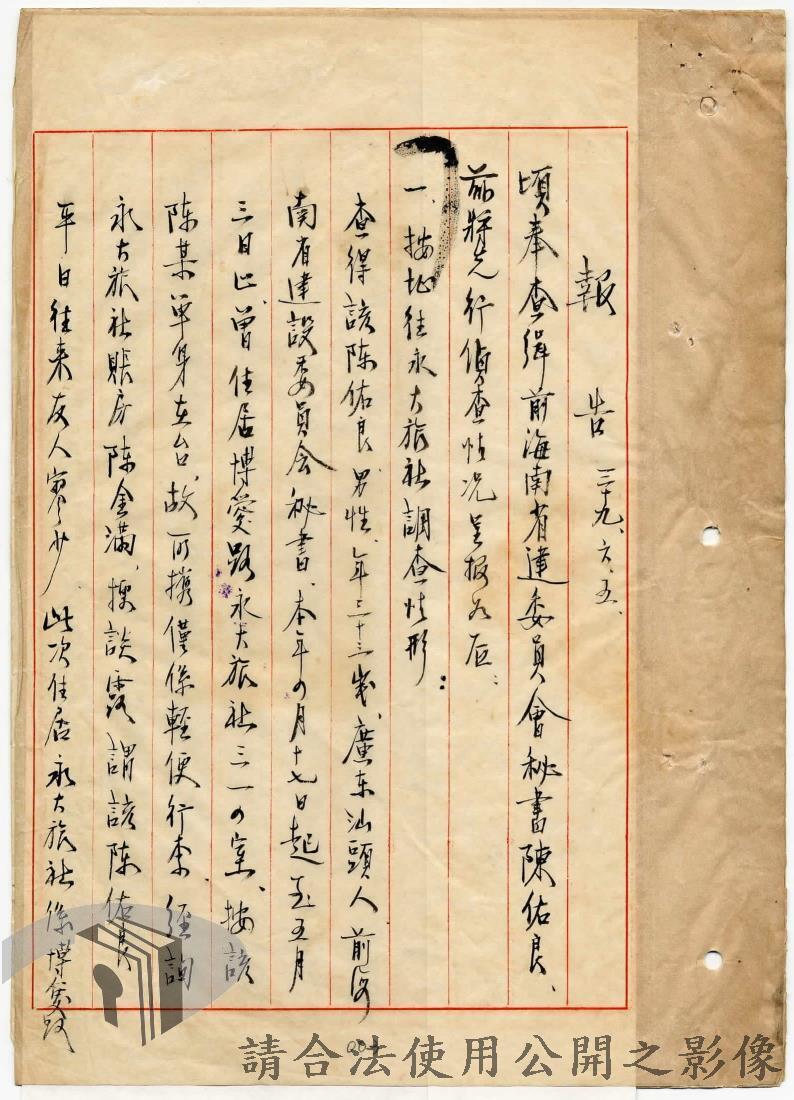 報告 三十九、六、五、
頃奉查緝前海南省建委員會秘書陳佑良、
茲將先行偵查情況呈报如后:
一、按址往永大旅社調查情形:
查得該陈佑良、男性、年三十三歲、廣东汕頭人前海
南省建設委員会秘書、本年四月十七日起至五月
三日止、曾住居博愛路永大旅社三一四室、按該
陈某單身在台、故所携僅係輕便行李、經詢
永大旅社賬房陈金滿、據談露謂該陈佑良
平日往来友人寥少、此次住居永大旅社係博愛路
204
請合法使用公開之影像